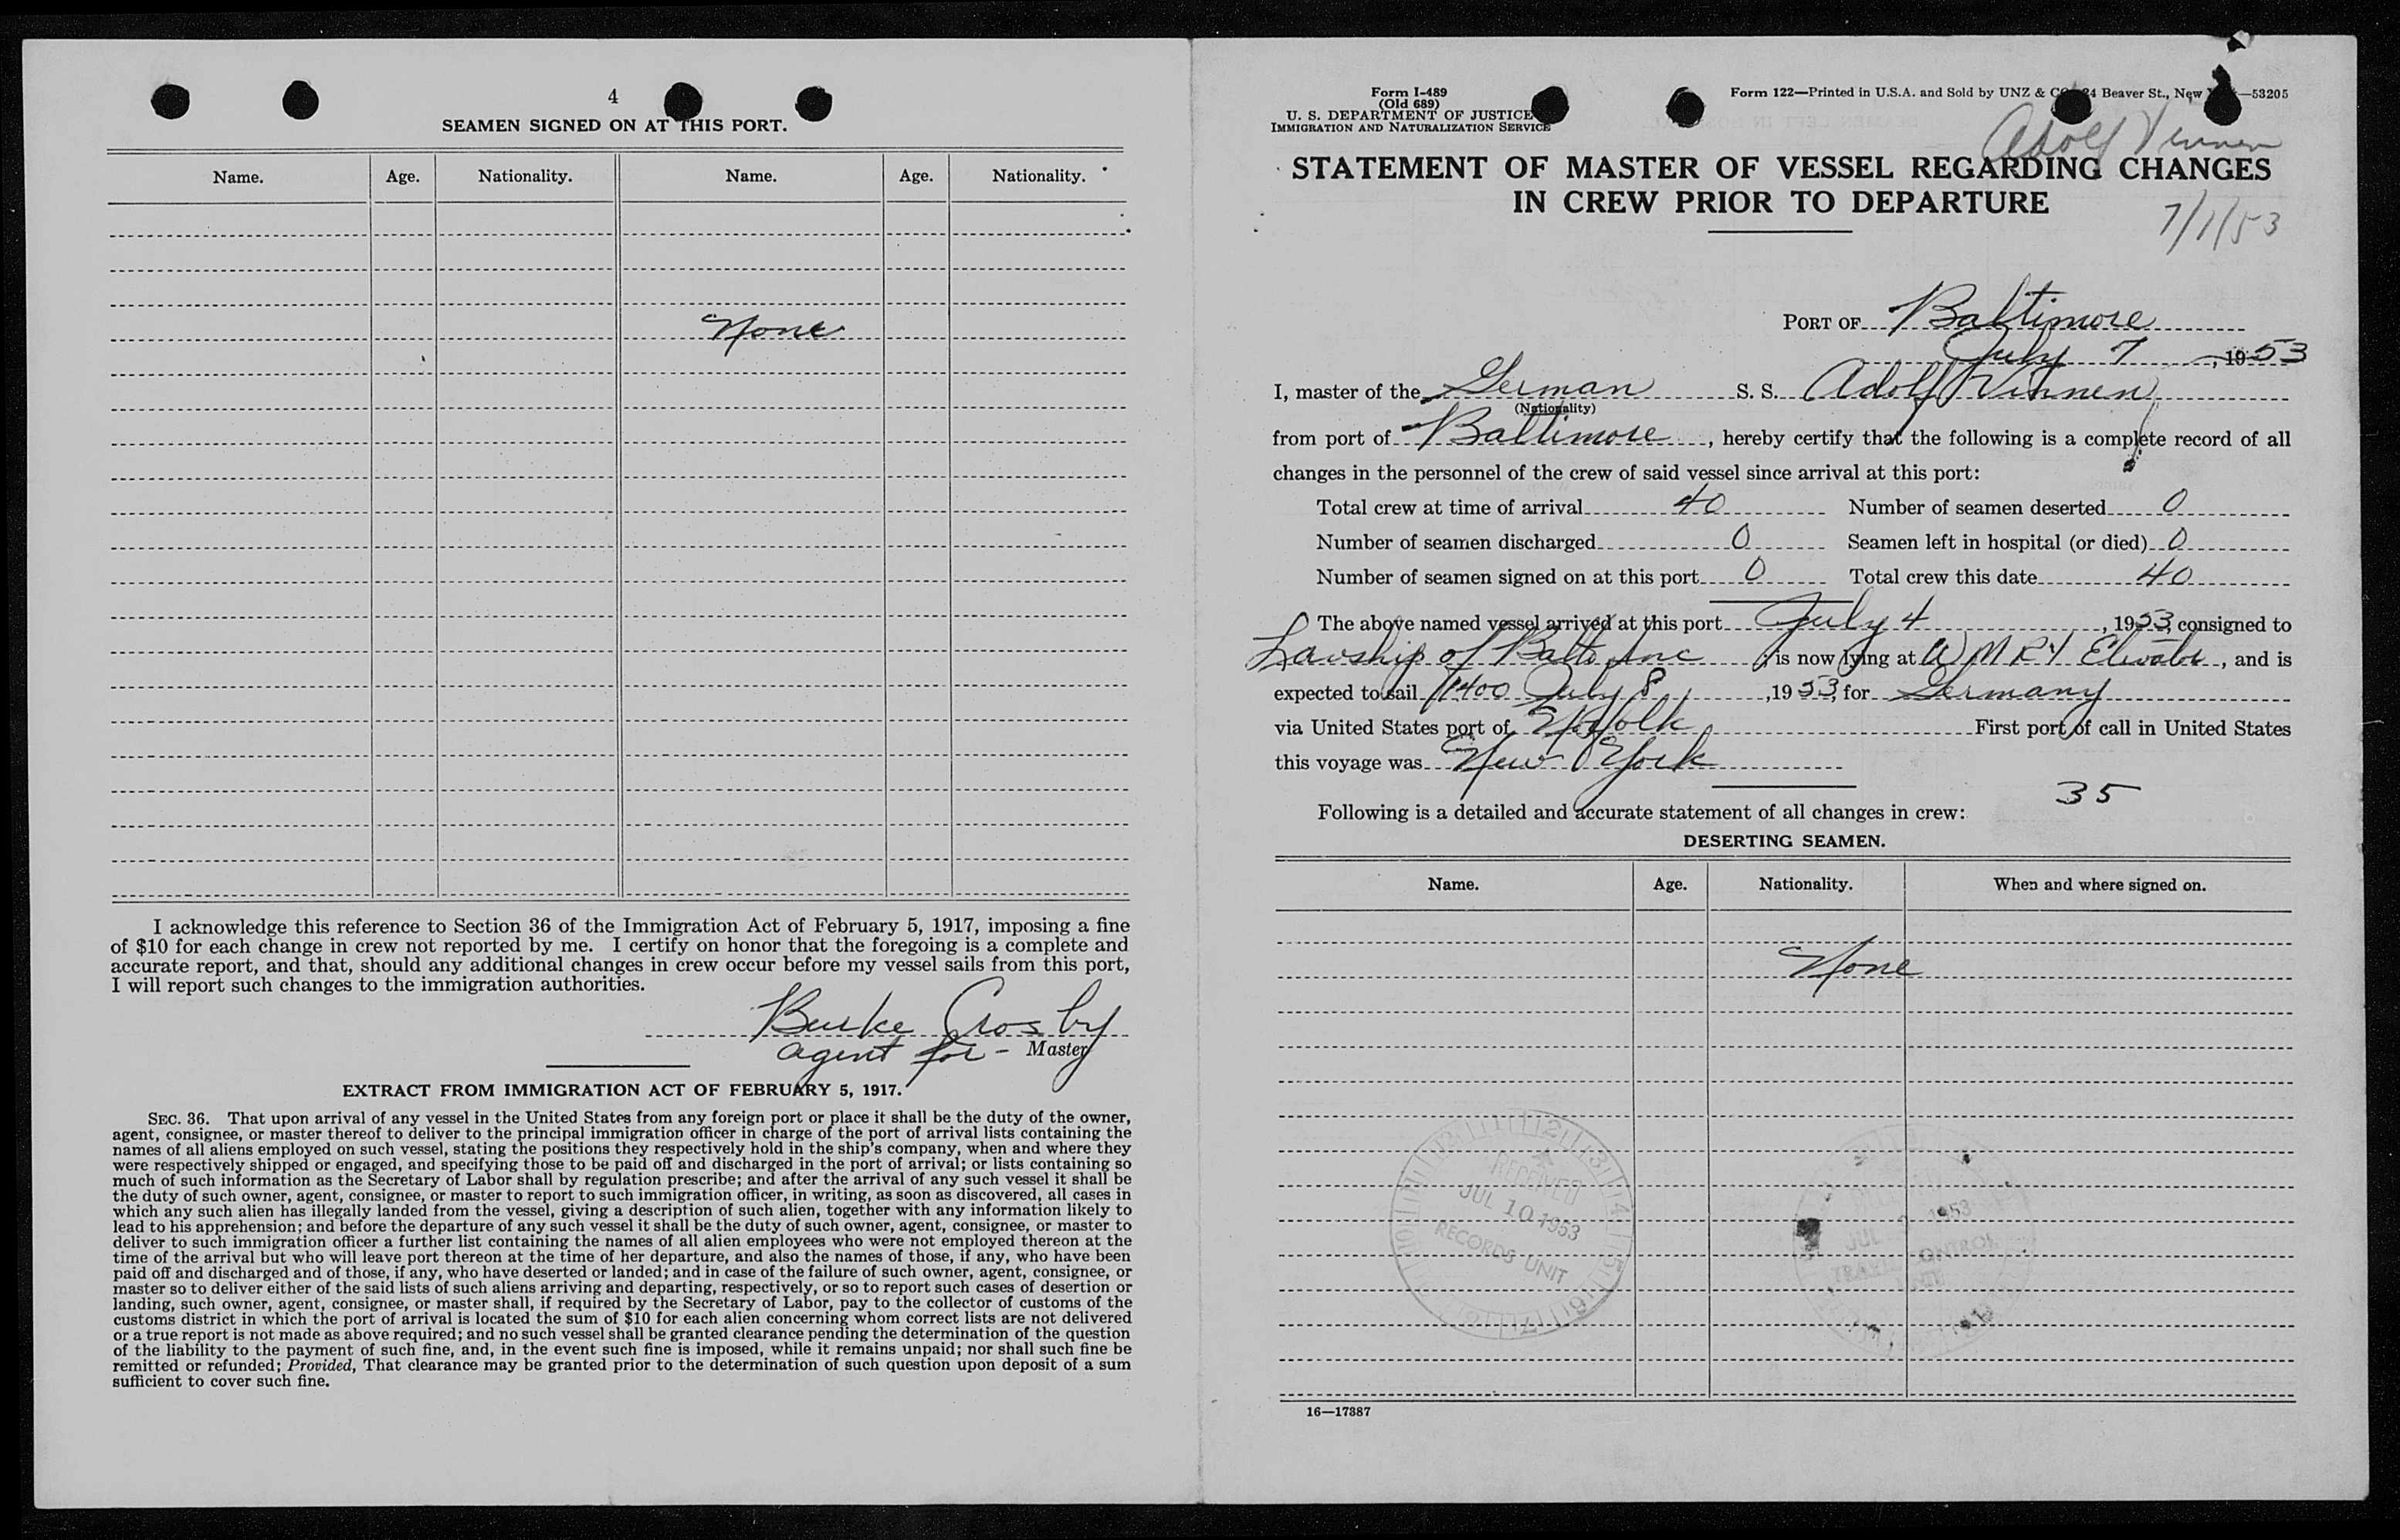 4
SEAMEN SIGNED ON AT THIS PORT.
Name. Age. Nationality. Name. Age. Nationality.
None
I acknowledge this reference to Section 36 of the Immigration Act of February 5, 1917, imposing a fine
of $10 for each change in crew not reported by me. I certify on honor that the foregoing is a complete and
accurate report, and that, should any additional changes in crew occur before my vessel sails from this port,
I will report such changes to the immigration authorities.
Burke Crosby
agent for - Master
EXTRACT FROM IMMIGRATION ACT OF FEBRUARY 5, 1917.
SEC. 36. That upon arrival of any vessel in the United States from any foreign port or place it shall be the duty of the owner,
agent, consignee, or master thereof to deliver to the principal immigration officer in charge of the port of arrival lists containing the
names of all aliens employed on such vessel, stating the positions they respectively hold in the ship's company, when and where they
were respectively shipped or engaged, and specifying those to be paid off and discharged in the port of arrival; or lists containing so
much of such information as the Secretary of Labor shall by regulation prescribe; and after the arrival of any such vessel it shall be
the duty of such owner, agent, consignee, or master to report to such immigration officer, in writing, as soon as discovered, all cases in
which any such alien has illegally landed from the vessel, giving a description of such alien, together with any information likely to
lead to his apprehension; and before the departure of any such vessel it shall be the duty of such owner, agent, consignee, or master to
deliver to such immigration officer a further list containing the names of all alien employees who were not employed thereon at the
time of the arrival but who will leave port thereon at the time of her departure, and also the names of those, if any, who have been
paid off and discharged and of those, if any, who have deserted or landed; and in case of the failure of such owner, agent, consignee, or
master so to deliver either of the said lists of such aliens arriving and departing, respectively, or so to report such cases of desertion or
landing, such owner, agent, consignee, or master shall, if required by the Secretary of Labor, pay to the collector of customs of the
customs district in which the port of arrival is located the sum of $10 for each alien concerning whom correct lists are not delivered
or a true report is not made as above required; and no such vessel shall be granted clearance pending the determination of the question
of the liability to the payment of such fine, and, in the event such fine is imposed, while it remains unpaid; nor shall such fine be
remitted or refunded; Provided, That clearance may be granted prior to the determination of such question upon deposit of a sum
sufficient to cover such fine.
Form I-489
(Old 689)
U. S. DEPARTMENT OF JUSTICE
IMMIGRATION AND NATURALIZATION SERVICE
Form 122—Printed in U.S.A. and Sold by UNZ & 24 Beaver St., New —53205
Adolf Vinnen
STATEMENT OF MASTER OF VESSEL REGARDING CHANGES
IN CREW PRIOR TO DEPARTURE
7/1/53
PORT OF Baltimore
July 7, 1953
I, master of the German S. S. Adolf Vinnen
(Nationality)
from port of Baltimore, hereby certify that the following is a complete record of all
changes in the personnel of the crew of said vessel since arrival at this port:
Total crew at time of arrival 40 Number of seamen deserted 0
Number of seamen discharged 0 Seamen left in hospital (or died) 0
Number of seamen signed on at this port 0 Total crew this date 40
The above named vessel arrived at this port July 4, 1953, consigned to
Lawship of Balto Inc; is now lying at WMRY Elevator, and is
expected to sail 1400 July 8, 1953, for Germany
via United States port of Norfolk First port of call in United States
this voyage was New York
35
Following is a detailed and accurate statement of all changes in crew:
DESERTING SEAMEN.
Name. Age. Nationality. When and where signed on.
None
RECEIVED
JUL 10 1953
RECORDS UNIT
JUL 1953
CONTROL
UNIT
16—17387